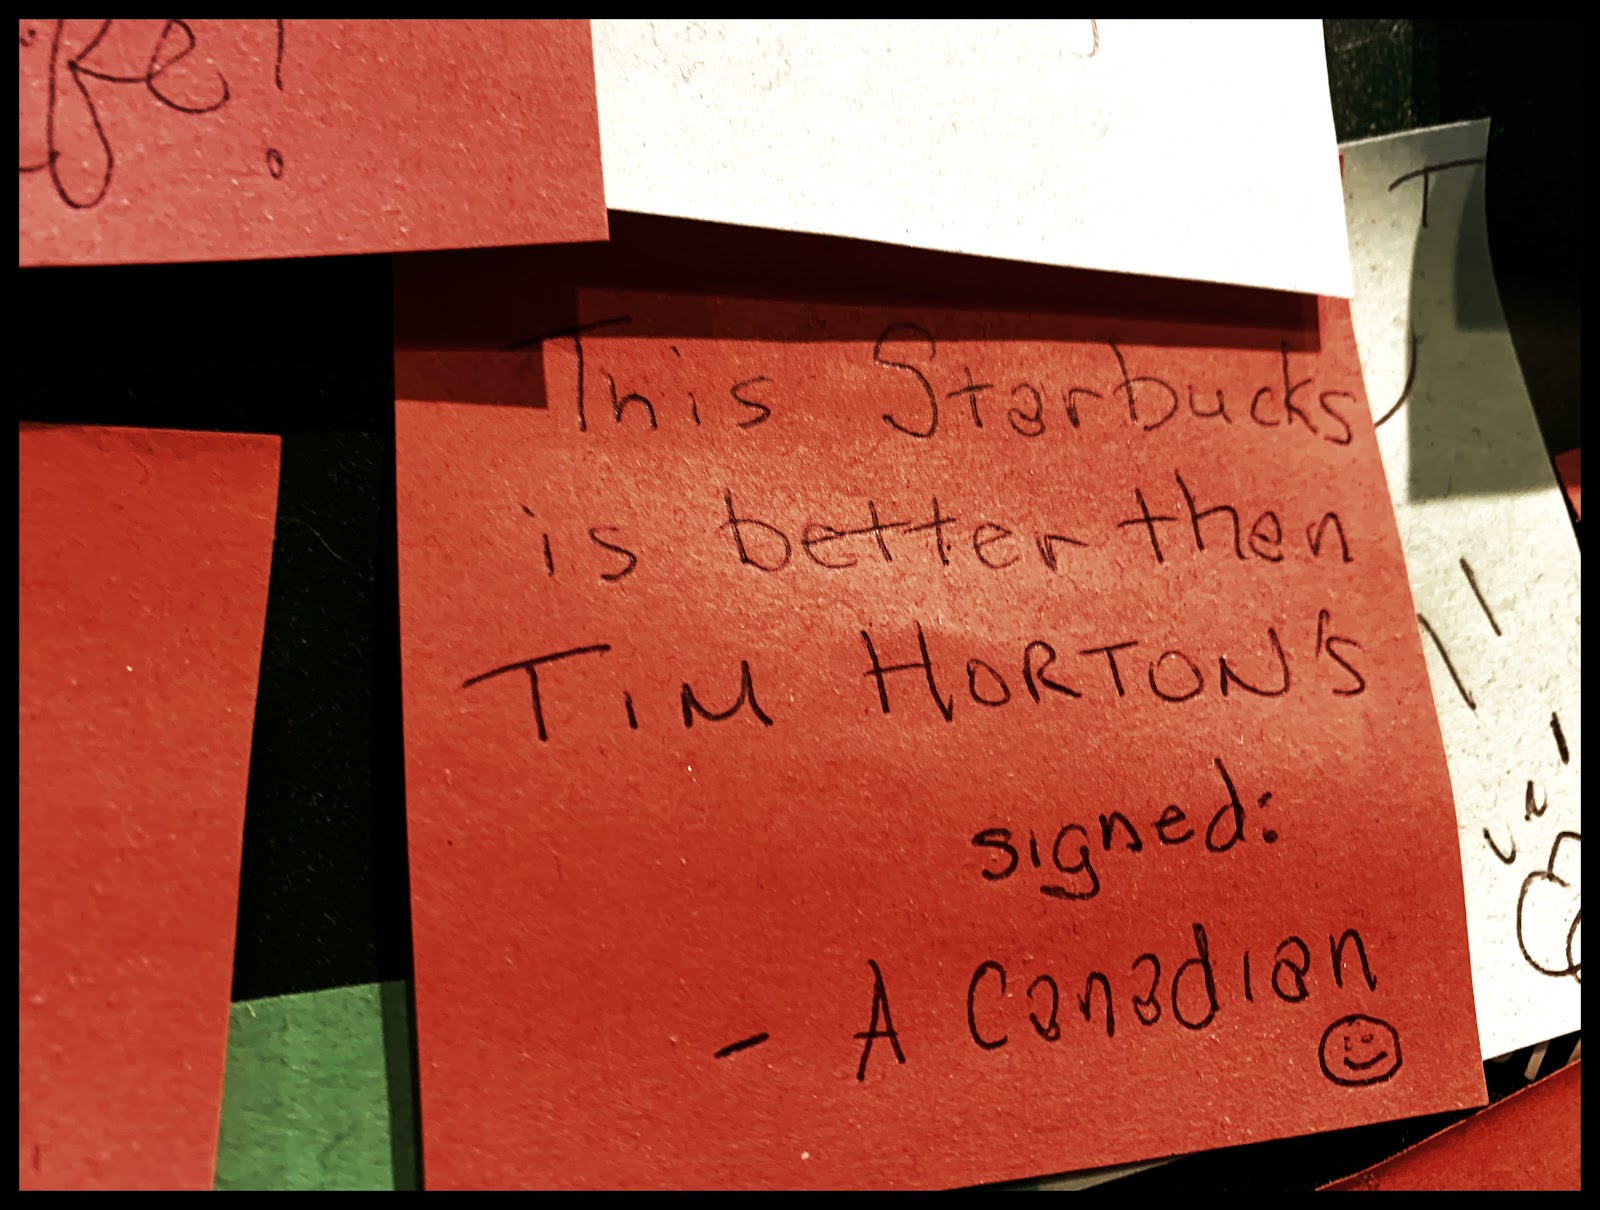 fe!
This Starbucks
is better then
TIM HORTON'S
signed:
- A Canadian